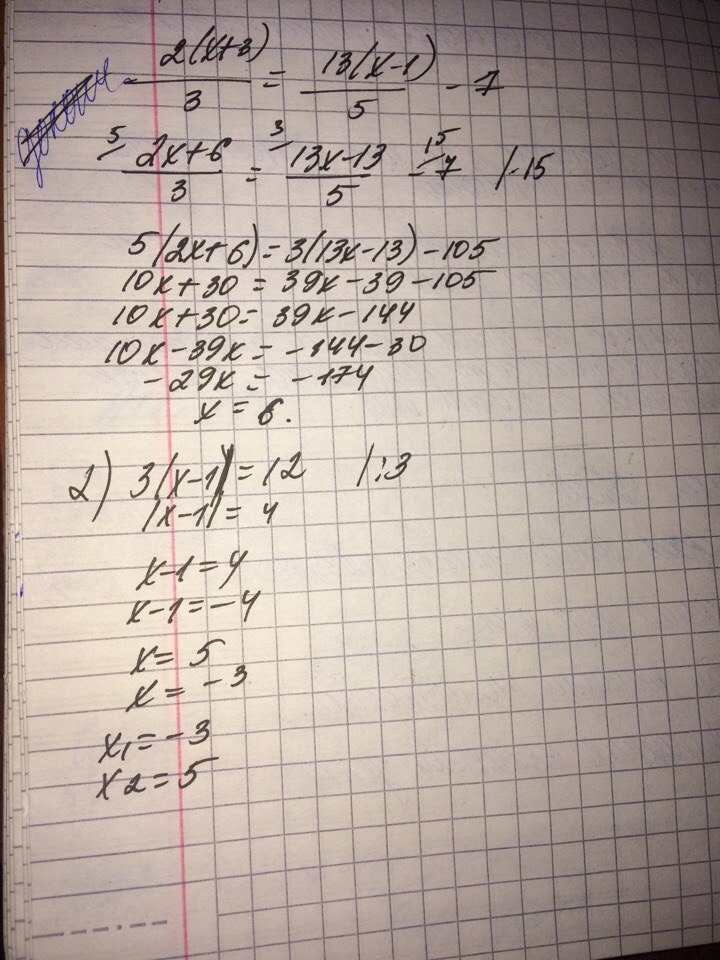 2(x+3)/3 = 13(x-1)/5 - 7
5/ 2x+6/3 = 3/ 13x-13/5 - 15/ 7 /·15
5(2x+6)=3(13x-13)-105
10x+30=39x-39-105
10x+30=39x-144
10x-39x=-144-30
-29x=-174
x=6.
2) 3|x-1|=12 /:3
|x-1|=4
x-1=4
x-1=-4
x=5
x=-3
x1=-3
x2=5